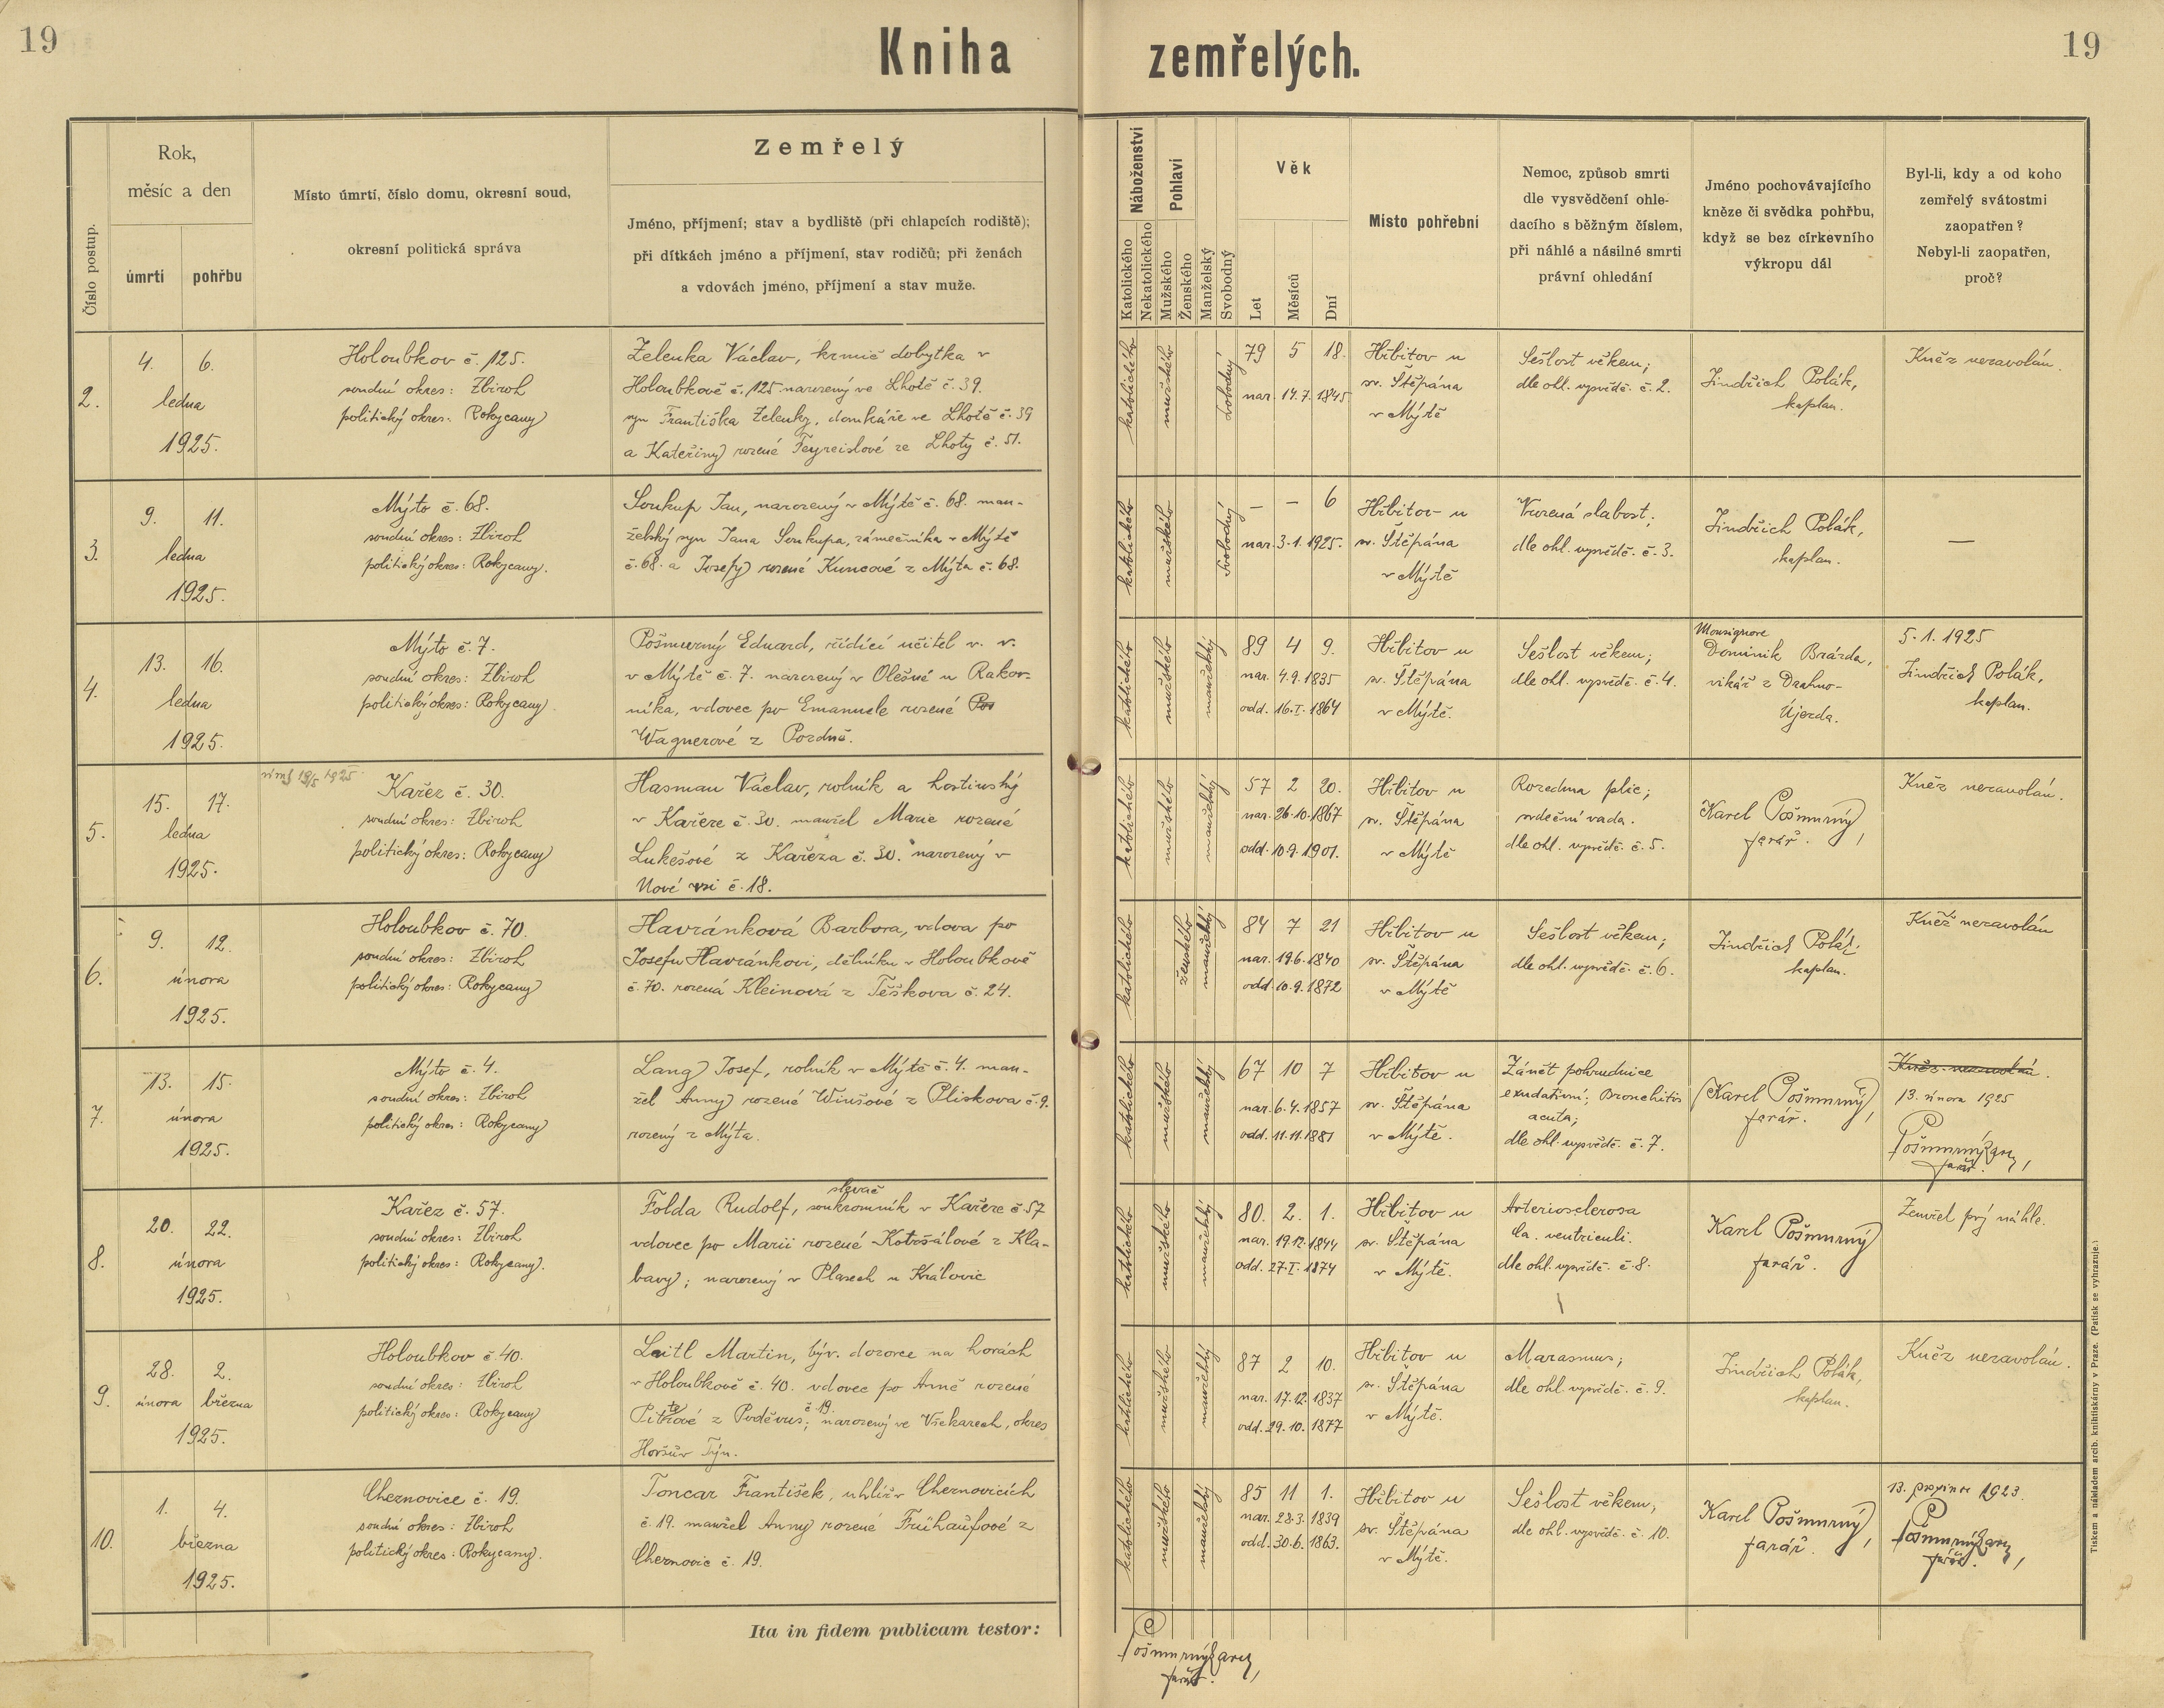 19
Kniha zemřelých.
19
Číslo postup.
Rok,
měsíc a den
úmrtí
pohřbu
Místo úmrtí, číslo domu, okresní soud,
okresní politická správa
Zemřelý
Jméno, příjmení; stav a bydliště (při chlapcích rodiště);
při dítkách jméno a příjmení, stav rodičů; při ženách
a vdovách jméno, příjmení a stav muže.
Náboženství
Katolického
Nekatolického
Pohlaví
Mužského
Ženského
Manželský
Svobodný
Věk
Let
Měsíců
Dní
Místo pohřební
Nemoc, způsob smrti
dle vysvědčení ohle-
dacího s běžným číslem,
při náhlé a násilné smrti
právní ohledání
Jméno pochovávajícího
kněze či svědka pohřbu,
když se bez církevního
výkropu dál
Byl-li, kdy a od koho
zemřelý svátostmi
zaopatřen?
Nebyl-li zaopatřen,
proč?
2.
4. 6.
ledna
1925.
Holoubkov č. 125.
soudní okres: Zbiroh
politický okres: Rokycany
Zelenka Václav, krmič dobytka v
Holoubkově č. 125 narozený ve Lhotě č. 39.
syn Františka Zelenky, domkáře ve Lhotě č. 39
a Kateřiny rozené Feyreislové ze Lhoty č. 51.
katolického
mužského
svobodný
79 5 18.
nar. 14.7.1845
Hřbitov u
sv. Štěpána
v Mýtě
Sešlost věkem;
dle ohl. vysvědč. č. 2.
Jindřich Polák,
kaplan.
Kněz nezavolán.
3.
9. 11.
ledna
1925.
Mýto č. 68.
soudní okres: Zbiroh
politický okres: Rokycany.
Soukup Jan, narozený v Mýtě č. 68. man-
želský syn Jana Soukupa, zámečníka v Mýtě
č. 68. a Josefy rozené Kuncové z Mýta č. 68.
katolického
mužského
svobodný
— — 6
nar. 3.1.1925.
Hřbitov u
sv. Štěpána
v Mýtě
Vrozená slabost;
dle ohl. vysvědč. č. 3.
Jindřich Polák,
kaplan.
—
4.
13. 16.
ledna
1925.
Mýto č. 7.
soudní okres: Zbiroh
politický okres: Rokycany.
Pošmurný Eduard, řídící učitel v. v.
v Mýtě č. 7. narozený v Olešné u Rakov-
níka, vdovec po Emanuele rozené Pos
Wagnerové z Pozdně.
katolického
mužského
manželský
89 4 9.
nar. 4.9.1835
odd. 16.I.1864
Hřbitov u
sv. Štěpána
v Mýtě.
Sešlost věkem;
dle ohl. vysvědč. č. 4.
Monsignore
Dominik Brázda,
vikář z Drahno-
Újezda.
5.1.1925
Jindřich Polák,
kaplan.
5.
15. 17.
ledna
1925.
19/5 1925
Kařez č. 30.
soudní okres: Zbiroh
politický okres: Rokycany
Hasman Václav, rolník a hostinský
v Kařeze č. 30. manžel Marie rozené
Lukešové z Kařeza č. 30. narozený v
Nové vsi č. 18.
katolického
mužského
manželský
57 2 20.
nar. 26.10.1867
odd. 10.9.1901.
Hřbitov u
sv. Štěpána
v Mýtě
Rozedma plic;
srdeční vada.
dle ohl. vysvědč. č. 5.
Karel Pošmurný,
farář.
Kněz nezavolán.
6.
9. 12.
února
1925.
Holoubkov č. 70.
soudní okres: Zbiroh
politický okres: Rokycany
Havránková Barbora, vdova po
Josefu Havránkovi, dělníku v Holoubkově
č. 70. rozená Kleinová z Těškova č. 24.
katolického
ženského
manželský
84 7 21
nar. 19.6.1840
odd. 10.9.1872
Hřbitov u
sv. Štěpána
v Mýtě
Sešlost věkem;
dle ohl. vysvědč. č. 6.
Jindřich Polák,
kaplan.
Kněz nezavolán
7.
13. 15.
února
1925.
Mýto č. 4.
soudní okres: Zbiroh
politický okres: Rokycany
Lang Josef, rolník v Mýtě č. 4. man-
žel Anny rozené Winšové z Plískova č. 9.
rozený z Mýta.
katolického
mužského
manželský
67 10 7
nar. 6.4.1857
odd. 11.11.1881
Hřbitov u
sv. Štěpána
v Mýtě.
Zánět pohrudnice
exudativní; Bronchitis
acuta;
dle ohl. vysvědč. č. 7.
Karel Pošmurný,
farář.
Kněz nezavolán.
13. února 1925
Pošmurný Karel,
farář.
8.
20. 22.
února
1925.
Kařez č. 57.
soudní okres: Zbiroh
politický okres: Rokycany.
slevač
Folda Rudolf, soukromník v Kařeze č. 57
vdovec po Marii rozené Kotršálové z Kla-
bavy; narozený v Plasech u Královic
katolického
mužského
manželský
80. 2. 1.
nar. 19.12.1844
odd. 27.I.1874
Hřbitov u
sv. Štěpána
v Mýtě.
Arteriosclerosa
Ca. ventriculi.
dle ohl. vysvědč. č. 8.
Karel Pošmurný
farář.
Zemřel prý náhle.
9.
28. 2.
února března
1925.
Holoubkov č. 40.
soudní okres: Zbiroh
politický okres: Rokycany
Leitl Martin, býv. dozorce na horách
v Holoubkově č. 40. vdovec po Anně rozené
z Poděvus; č. 19. narozený ve Všekarech, okres
Horšův Týn.
katolického
mužského
manželský
87 2 10.
nar. 17.12.1837
odd. 29.10.1877
Hřbitov u
sv. Štěpána
v Mýtě.
Marasmus;
dle ohl. vysvědč. č. 9.
Jindřich Polák,
kaplan.
Kněz nezavolán.
10.
1. 4.
března
1925.
Cheznovice č. 19.
soudní okres: Zbiroh
politický okres: Rokycany.
Toncar František, uhlíř v Cheznovicích
č. 19. manžel Anny rozené Frühaufové z
Cheznovic č. 19.
katolického
mužského
manželský
85 11 1.
nar. 28.3.1839
odd. 30.6.1863.
Hřbitov u
sv. Štěpána
v Mýtě.
Sešlost věkem;
dle ohl. vysvědč. č. 10.
Karel Pošmurný,
farář.
13. prosince 1923.
Pošmurný Karel,
farář.
Ita in fidem publicam testor:
Pošmurný Karel,
farář.
Tiskem a nákladem arcib. knihtiskárny v Praze. (Patisk se vyhrazuje.)